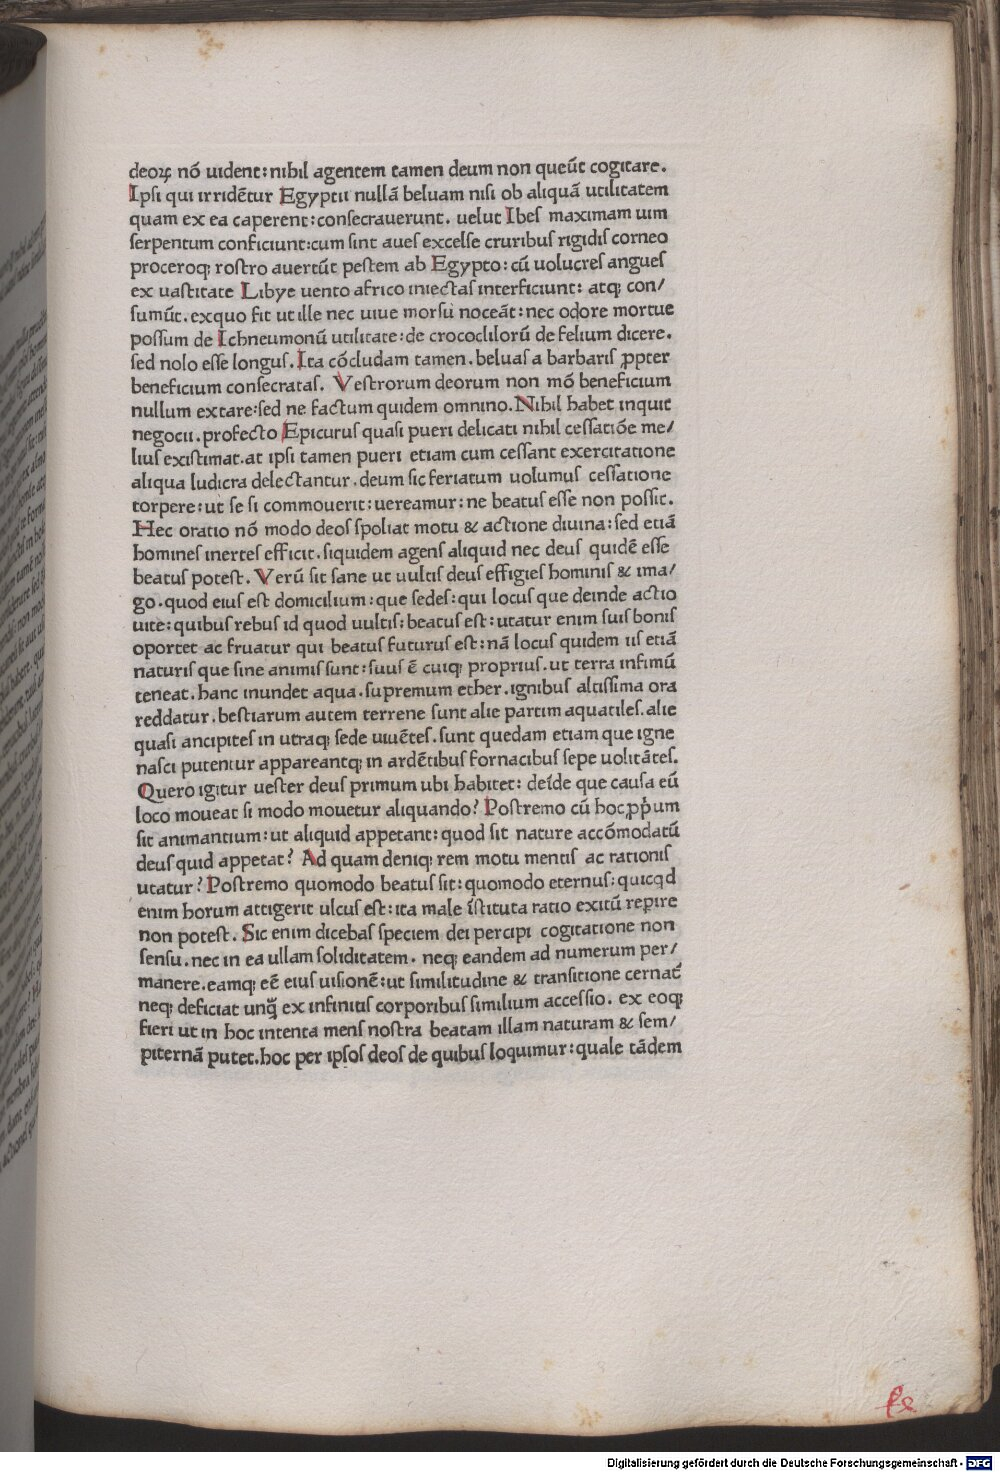 deoꝝ nō uident:nihil agentem tamen deum non queūt cogitare.
Ipsi qui irridētur Egyptii nullā beluam nisi ob aliquā utilitatem
quam ex ea caperent:consecrauerunt. uelut Ibes maximam uim
serpentum conficiunt:cum sint aues excelse cruribus rigidis corneo
proceroqꝫ rostro auertūt pestem ab Egypto:cū uolucres angues
ex uastitate Libye uento africo iniectas interficiunt: atqꝫ con/
sumūt.exquo fit ut ille nec uiue morsu noceāt:nec odore mortue
possum de Ichneumonū utilitate:de crococlilorū de felium dicere.
sed nolo esse longus.Ita cōcludam tamen.beluas a barbaris ꝓpter
beneficium consecratas. Vestrorum deorum non mō beneficium
nullum extare:sed ne factum quidem omnino.Nihil habet inquit
negocii.profecto Epicurus quasi pueri delicati nihil cessatiōe me/
lius existimat.at ipsi tamen pueri etiam cum cessant exercitatione
aliqua ludicra delectantur.deum sic feriatum uolumus cessatione
torpere:ut se si commouerit:uereamur:ne beatus esse non possit.
Hec oratio nō modo deos spoliat motu & actione diuina:sed etiā
homines inertes efficit.siquidem agens aliquid nec deus quidē esse
beatus potest. Verū sit sane ut uultis deus effigies hominis & ima/
go.quod eius est domicilium:que sedes:qui locus que deinde actio
uite:quibus rebus id quod uultis:beatus est:utatur enim suis bonis
oportet ac fruatur qui beatus futurus est:nā locus quidem iis etiā
naturis que sine animis sunt:suus ē cuiqꝫ proprius.ut terra infimū
teneat.hanc inundet aqua.supremum ether.ignibus altissima ora
reddatur.bestiarum autem terrene sunt alie partim aquatiles.alie
quasi ancipites in utraqꝫ sede uiuētes.sunt quedam etiam que igne
nasci putentur appareantqꝫ in ardētibus fornacibus sepe uolitātes.
Quero igitur uester deus primum ubi habitet: deīde que causa eū
loco moueat si modo mouetur aliquando? Postremo cū hoc ꝓpͥum
sit animantium:ut aliquid appetant:quod sit nature accōmodatū
deus quid appetat? Ad quam deniqꝫ rem motu mentis ac rationis
utatur? Postremo quomodo beatus sit:quomodo eternus:quicqd
enim horum attigerit ulcus est:ita male īstituta ratio exitū repire
non potest. Sic enim dicebas speciem dei percipi cogitatione non
sensu.nec in ea ullam soliditatem. neqꝫ eandem ad numerum per/
manere.eamqꝫ eē eius uisionē:ut similitudine & transitione cernat᷑
neqꝫ deficiat unq̄ ex infinitis corporibus similium accessio. ex eoqꝫ
fieri ut in hoc intenta mens nostra beatam illam naturam & sem/
piternā putet.hoc per ipsos deos de quibus loquimur:quale tādem
Digitalisierung gefördert durch die Deutsche Forschungsgemeinschaft - DFG